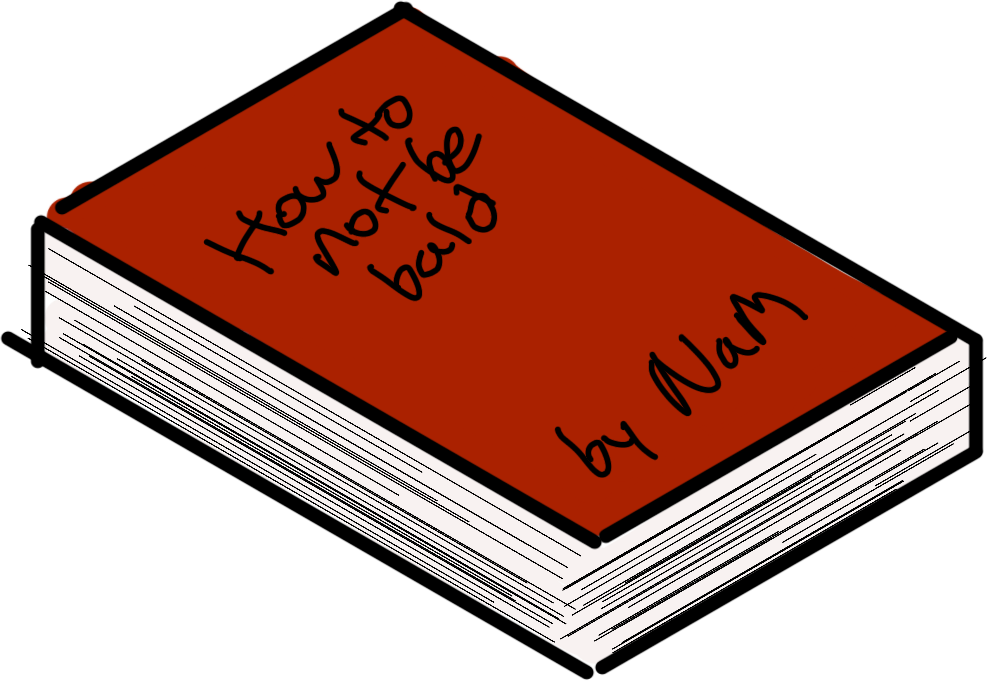 How to
not be
bald
by Nam